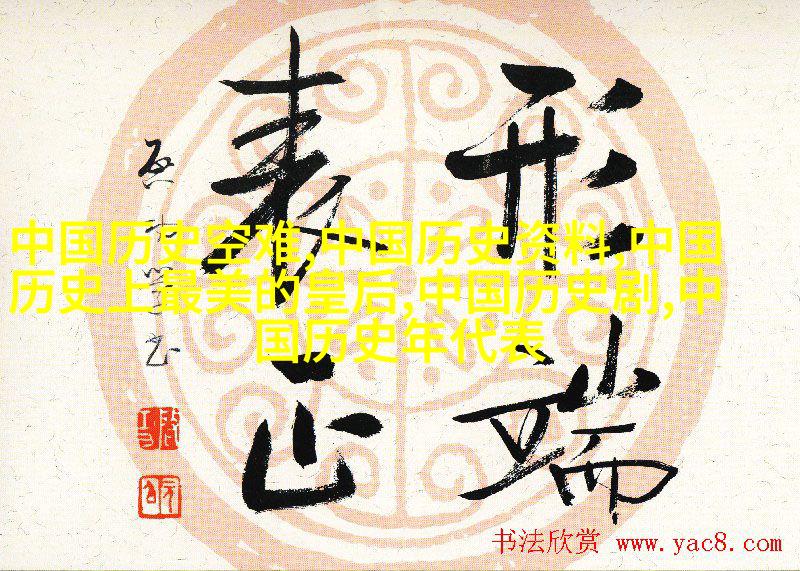 形端
表正
中国历史空难,中国历史资料,中国
历史上最美的皇后,中国历史剧,中
国历史年代表
书法欣赏 www.yac8.com